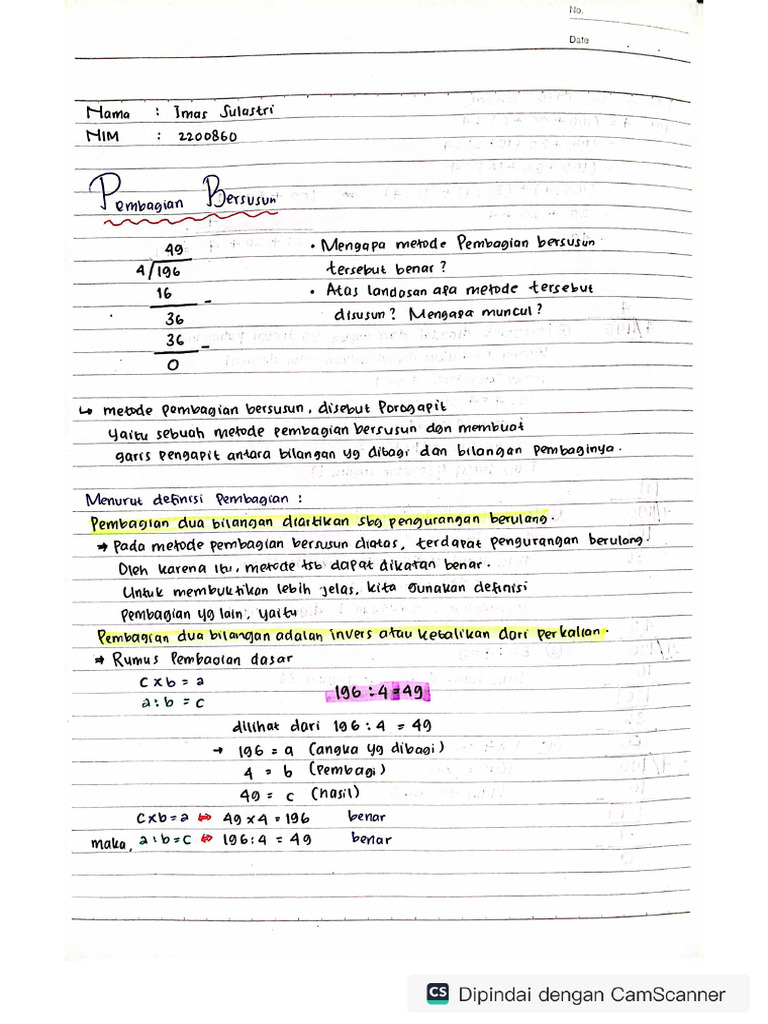 No.
Date
Nama : Imas Sulastri
NIM : 2200860
Pembagian Bersusun
49
4/196
16 -
36
36 -
0
• Mengapa metode Pembagian bersusun
tersebut benar?
• Atas landasan apa metode tersebut
disusun? Mengapa muncul?
↳ metode pembagian bersusun, disebut Porogapit
yaitu sebuah metode pembagian bersusun dgn membuat
garis pengapit antara bilangan yg dibagi dan bilangan pembaginya.
Menurut definisi Pembagian :
Pembagian dua bilangan diartikan sbg pengurangan berulang.
→ Pada metode pembagian bersusun diatas, terdapat pengurangan berulang.
Oleh karena itu, metode tsb dapat dikatan benar.
Untuk membuktikan lebih jelas, kita gunakan definisi
Pembagian yg lain, yaitu
Pembagian dua bilangan adalah invers atau kebalikan dari perkalian.
→ Rumus Pembagian dasar
c x b = a
a : b = c
196 : 4 = 49
dilihat dari 196 : 4 = 49
→ 196 = a (angka yg dibagi)
4 = b (Pembagi)
49 = c (hasil)
c x b = a ⇔ 49 x 4 = 196 benar
maka, a : b = c ⇔ 196 : 4 = 49 benar
CS Dipindai dengan CamScanner